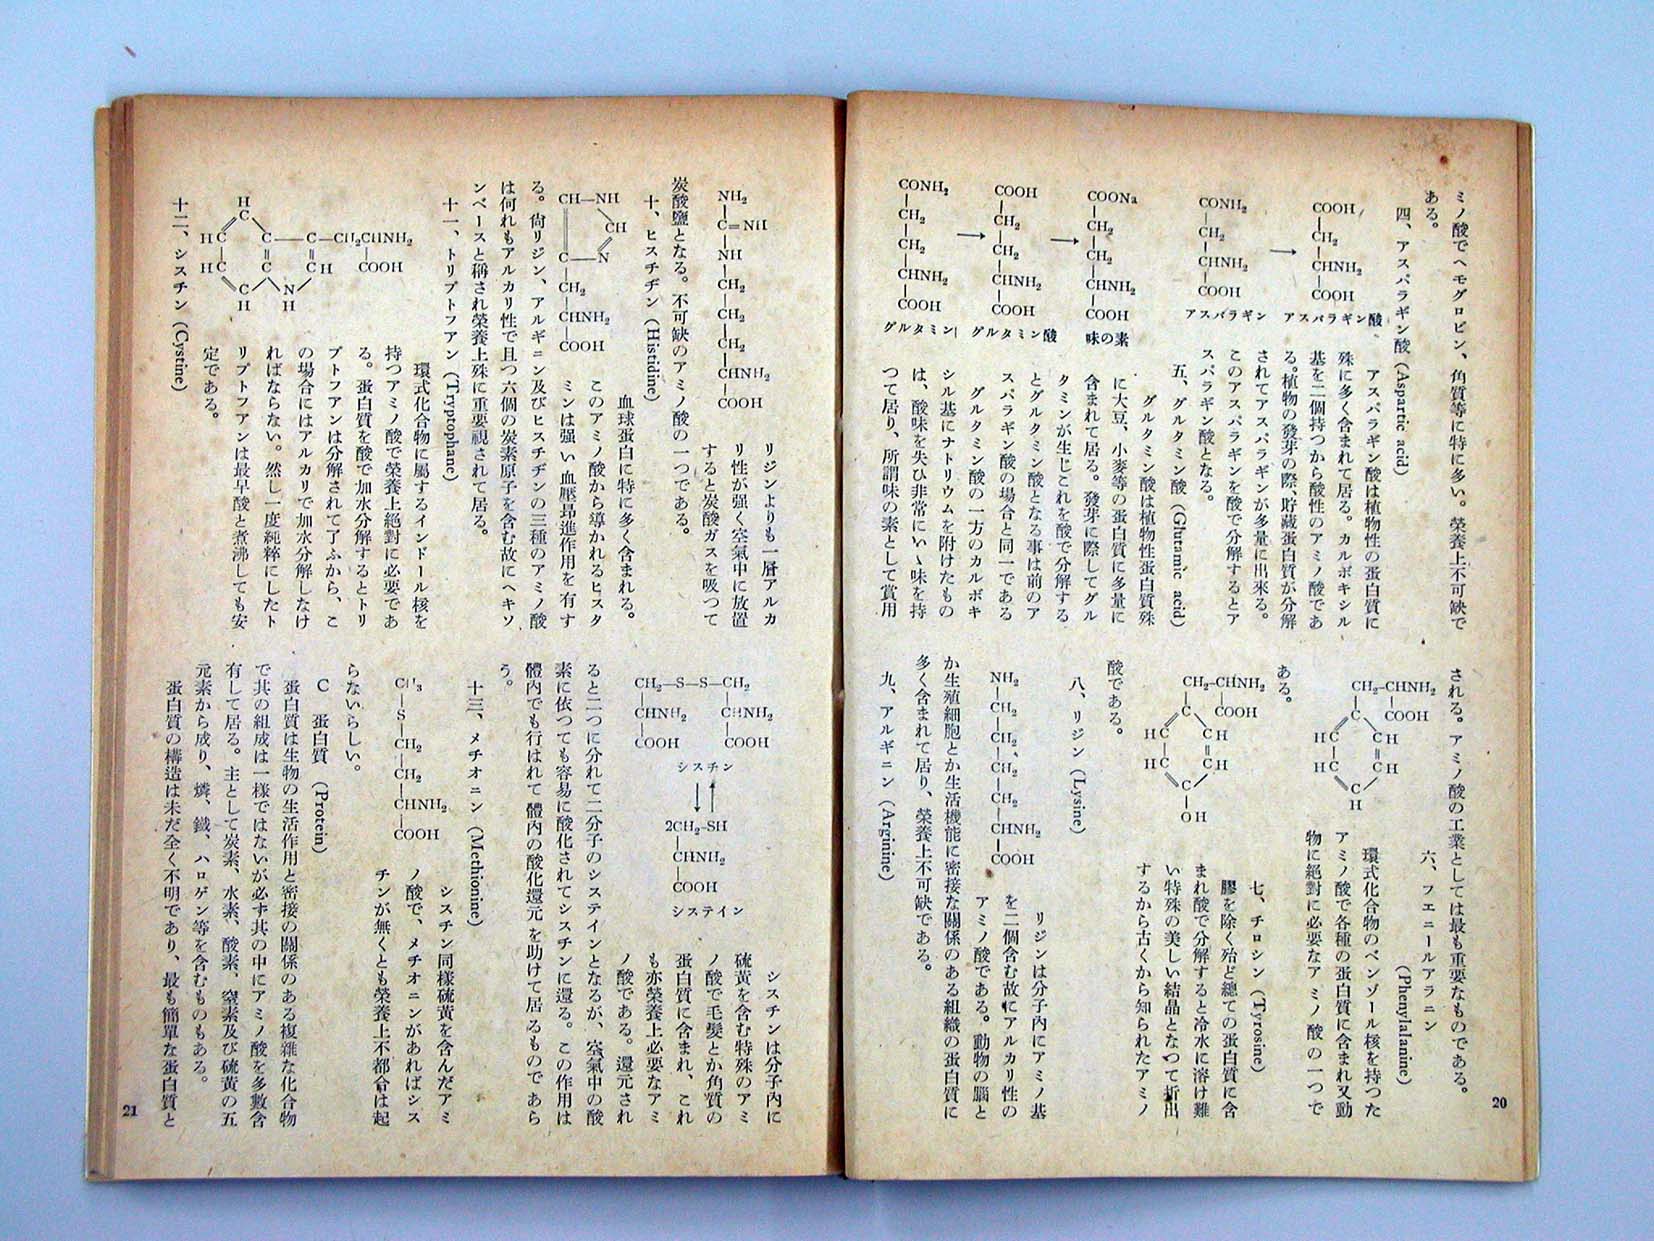 ミノ酸でヘモグロビン、角質等に特に多い。榮養上不可缺で
ある。
四、アスパラギン酸 (Aspartic acid)
COOH
CH2
CHNH2
COOH
アスパラギン酸
→
CONH2
CH2
CHNH2
COOH
アスパラギン
アスパラギン酸は植物性の蛋白質に
殊に多く含まれて居る。カルボキシル
基を二個持つから酸性のアミノ酸であ
る。植物の發芽の際、貯藏蛋白質が分解
されてアスパラギンが多量に出來る。
このアスパラギンを酸で分解するとア
スパラギン酸となる。
五、グルタミン酸 (Glutamic acid)
COONa
CH2
CH2
CHNH2
COOH
味の素
→
COOH
CH2
CH2
CHNH2
COOH
グルタミン酸
→
CONH2
CH2
CH2
CHNH2
COOH
グルタミン
グルタミン酸は植物性蛋白質殊
に大豆、小麥等の蛋白質に多量に
含まれて居る。發芽に際してグル
タミンが生じこれを酸で分解する
とグルタミン酸となる事は前のア
スパラギン酸の場合と同一である
グルタミン酸の一方のカルボキ
シル基にナトリウムを附けたもの
は、酸味を失ひ非常にいゝ味を持
つて居り、所謂味の素として賞用
される。アミノ酸の工業としては最も重要なものである。
六、フエニールアラニン
(Phenylalanine)
CH2-CHNH2
COOH
C
HC CH
HC CH
C
H
環式化合物のベンゾール核を持つた
アミノ酸で各種の蛋白質に含まれ又動
物に絶對に必要なアミノ酸の一つで
ある。
七、チロシン (Tyrosine)
CH2-CHNH2
COOH
C
HC CH
HC CH
C
OH
膠を除く殆ど總ての蛋白質に含
まれ酸で分解すると冷水に溶け難
い特殊の美しい結晶となつて折出
するから古くから知られたアミノ
酸である。
八、リジン (Lysine)
NH2
CH2
CH2
CH2
CH2
CHNH2
COOH
リジンは分子內にアミノ基
を二個含む故にアルカリ性の
アミノ酸である。動物の腦と
か生殖細胞とか生活機能に密接な關係のある組織の蛋白質に
多く含まれて居り、榮養上不可缺である。
九、アルギニン (Arginine)
20
NH2
C=NH
NH
CH2
CH2
CH2
CHNH2
COOH
リジンよりも一層アルカ
リ性が强く空氣中に放置
すると炭酸ガスを吸つて
炭酸鹽となる。不可缺のアミノ酸の一つである。
十、ヒスチヂン (Histidine)
CH-NH
CH
C-N
CH2
CHNH2
COOH
血球蛋白に特に多く含まれる。
このアミノ酸から導かれるヒスタ
ミンは强い血壓昻進作用を有す
る。尙リジン、アルギニン及びヒスチヂンの三種のアミノ酸
は何れもアルカリ性で且つ六個の炭素原子を含む故にヘキソ
ンベースと稱され榮養上殊に重要視されて居る。
十一、トリプトフアン (Tryptophane)
H
C
HC C-C-CH2CHNH2
HC C CH COOH
C NH
H
環式化合物に屬するインドール核を
持つアミノ酸で榮養上絶對に必要であ
る。蛋白質を酸で加水分解するとトリ
プトフアンは分解されて了ふから、こ
の場合にはアルカリで加水分解しなけ
ればならない。然し一度純粹にしたト
リプトフアンは最早酸と煮沸しても安
定である。
十二、シスチン (Cystine)
CH2-S-S-CH2
CHNH2 CHNH2
COOH COOH
シスチン
↓↑
2CH2-SH
CHNH2
COOH
システイン
シスチンは分子內に
硫黃を含む特殊のアミ
ノ酸で毛髮とか角質の
蛋白質に含まれ、これ
も亦榮養上必要なアミ
ノ酸である。還元され
ると二つに分れて二分子のシステインとなるが、空氣中の酸
素に依つても容易に酸化されてシスチンに還る。この作用は
體內でも行はれて體內の酸化還元を助けて居るものであら
う。
十三、メチオニン (Methionine)
CH3
S
CH2
CH2
CHNH2
COOH
シスチン同樣硫黃を含んだアミ
ノ酸で、メチオニンがあればシス
チンが無くとも榮養上不都合は起
らないらしい。
C 蛋白質 (Protein)
蛋白質は生物の生活作用と密接の關係のある複雜な化合物
で其の組成は一樣ではないが必ず其の中にアミノ酸を多數含
有して居る。主として炭素、水素、酸素、窒素及び硫黃の五
元素から成り、燐、鐵、ハロゲン等を含むものもある。
蛋白質の構造は未だ全く不明であり、最も簡單な蛋白質と
21